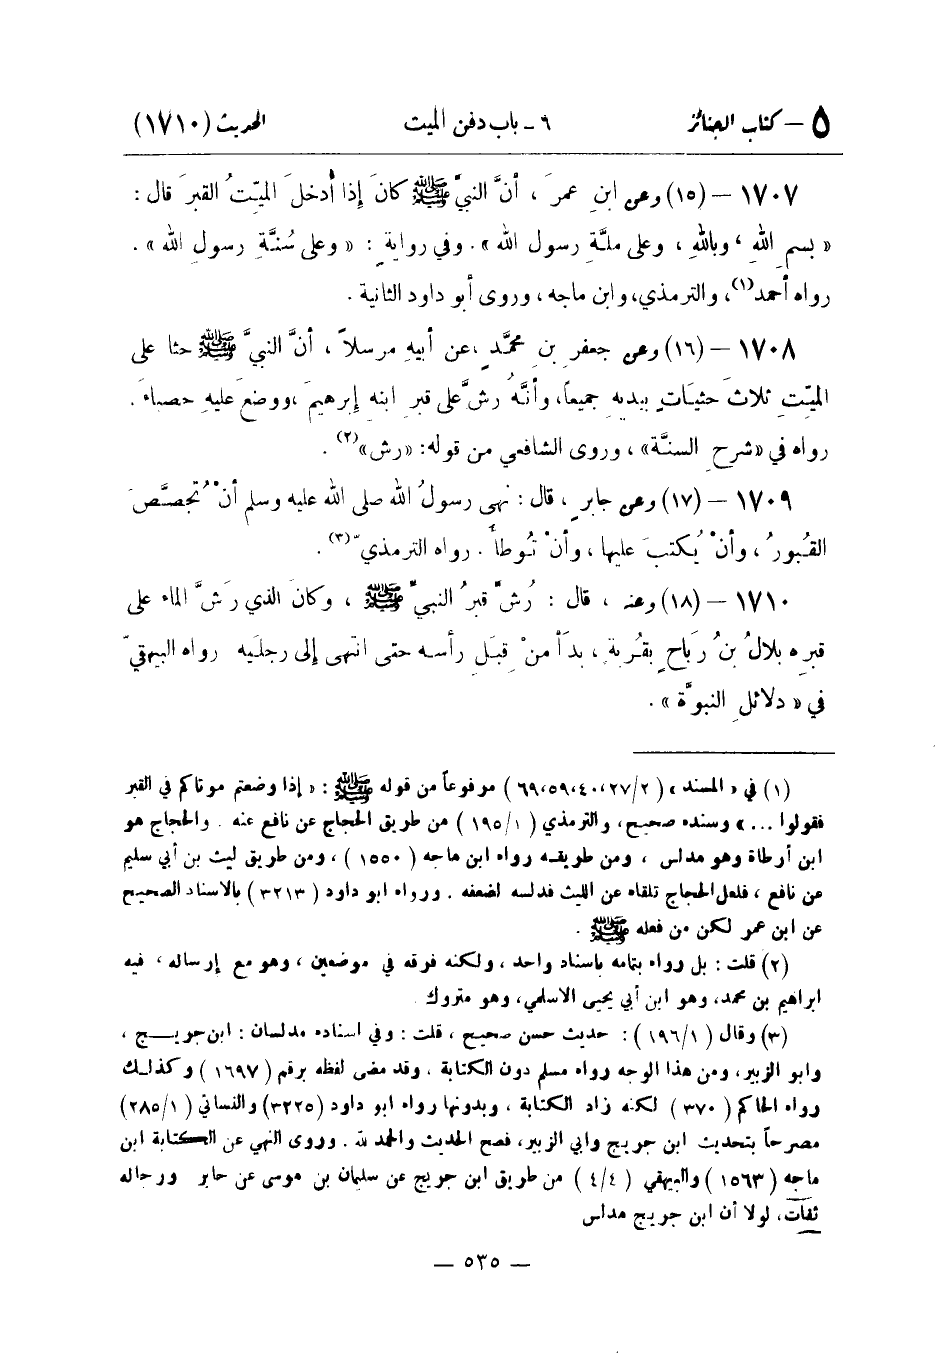 ٥ – كتاب الجنائز ٦ – باب دفن الميت الحديث (١٧١٠)
١٧٠٧ – (١٥) وعن ابنِ عمرَ ، أنَّ النبيَّ ﷺ كانَ إذا أُدخلَ الميّتُ القبرَ قال :
« بسمِ اللهِ ، وباللهِ ، وعلى ملَّةِ رسول الله ». وفي روايةٍ : « وعلى سُنَّةِ رسولِ الله » .
رواه أحمد(١)، والترمذي، وابن ماجه ، وروى أبو داود الثانية .
١٧٠٨ – (١٦) وعن جعفرِ بنِ محمَّدٍ ،عن أبيهِ مرسلاً ، أنَّ النبيَّ ﷺ حثا على
الميّتِ ثلاثَ حثيَاتٍ بيديهِ جميعاً، وأنَّهُ رشَّ على قبرِ ابنهِ إبرهيمَ ،ووضعَ عليهِ حصباءَ .
رواه في «شرحِ السنَّة» ، وروى الشافعي من قوله: «رش»(٢) .
١٧٠٩ – (١٧) وعن جابرٍ ، قال : نهى رسولُ الله صلى الله عليه وسلم أنْ تُجصَّصَ
القُبورُ ، وأنْ يُكتبَ عليها ، وأنْ تُوطأَ . رواه الترمذيّ(٣) .
١٧١٠ – (١٨) وعنه ، قال : رُشَّ قبرُ النبيِّ ﷺ ، وكانَ الذي رَشَّ الماء على
قبرِه بلالُ بنُ رَباحٍ بقُربةٍ ، بدَأ منْ قِبَلِ رأسه حتى انتهى إلى رجليَه رواه البيهقيّ
في « دلائلِ النبوَّة » .
(١) في « المسند » (٢/ ٢٧، ٤٠، ٥٩، ٦٩) موفوعاً من قوله ﷺ : « إذا وضعتم موتاكم في القبر
فقولوا ... » وسنده صحيح، والترمذي (١/ ١٩٥) من طريق الحجاج عن نافع عنه . والحجاج هو
ابن أرطاة وهو مدلس ، ومن طريقه رواه ابن ماجه (١٥٥٠) ، ومن طريق ليث بن أبي سليم
عن نافع ، فلعل الحجاج تلقاه عن الليث فدلسه لضعفه . ورواه ابو داود (٣٢١٣) بالاسناد الصحيح
عن ابن عمر لكن من فعله ﷺ .
(٢) قلت : بل رواه بتمامه باسناد واحد ، ولكنه فرقه في موضعين ، وهو مع إرساله ، فيه
ابراهيم بن محمد، وهو ابن أبي يحيى الاسلمي، وهو متروك .
(٣) وقال (١/ ١٩٦) : حديث حسن صحيح ، قلت : وفي اسناده مدلسان : ابن جريج ،
وابو الزبير، ومن هذا الوجه رواه مسلم دون الكتابة ، وقد مضى لفظه برقم (١٦٩٧) وكذلك
رواه الحاكم (٣٧٠) لكنه زاد الكتابة ، وبدونها رواه ابو داود (٣٢٢٥) والنسائي (١/ ٢٨٥)
مصرحاً بتحديث ابن جريج وابي الزبير، فصح الحديث والحمد لله . وروى النهي عن الكتابة ابن
ماجه (١٥٦٣) والبيهقي (٤/ ٤) من طريق ابن جريج عن سليمان بن موسى عن جابر ورجاله
ثقات، لولا أن ابن جريج مدلس
– ٥٣٥ –